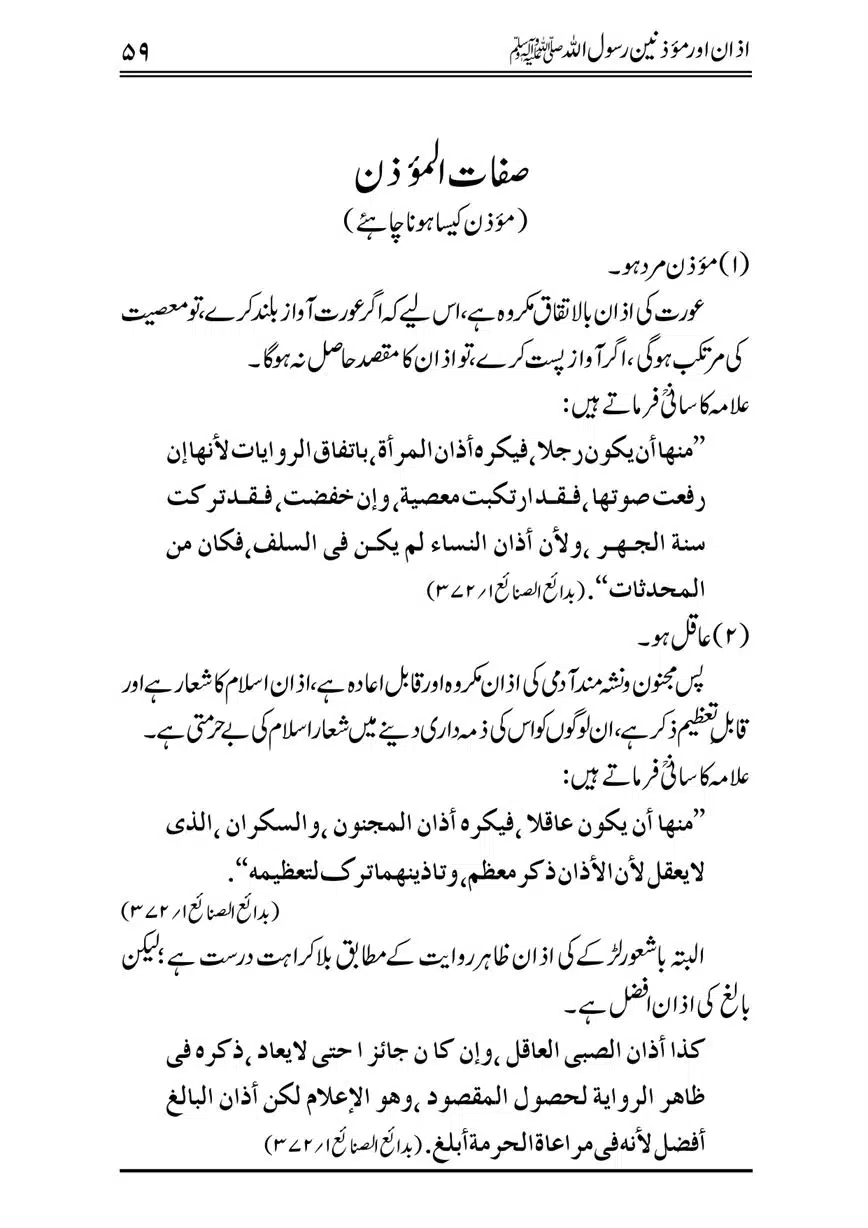 اذان اور مؤذنین رسول اللہ ﷺ ۵۹
صفات المؤذن
(مؤذن کیسا ہونا چاہئے)
(۱) مؤذن مرد ہو۔
عورت کی اذان بالاتفاق مکروہ ہے، اس لیے کہ اگر عورت آواز بلند کرے، تو معصیت
کی مرتکب ہوگی، اگر آواز پست کرے، تو اذان کا مقصد حاصل نہ ہوگا۔
علامہ کاسانیؒ فرماتے ہیں:
”منها أن يكون رجلا، فيكره أذان المرأة، باتفاق الروايات لأنها إن
رفعت صوتها، فقد ارتكبت معصية، وإن خفضت، فقد تركت
سنة الجهر، ولأن أذان النساء لم يكن فى السلف، فكان من
المحدثات“. (بدائع الصنائع ۱/۳۷۲)
(۲) عاقل ہو۔
پس مجنون ونشہ مند آدمی کی اذان مکروہ اور قابل اعادہ ہے، اذان اسلام کا شعار ہے اور
قابلِ تعظیم ذکر ہے، ان لوگوں کو اس کی ذمہ داری دینے میں شعار اسلام کی بے حرمتی ہے۔
علامہ کاسانیؒ فرماتے ہیں:
”منها أن يكون عاقلا، فيكره أذان المجنون، والسكران، الذى
لايعقل لأن الأذان ذكر معظم، وتاذينهما ترك لتعظيمه“.
(بدائع الصنائع ۱/۳۷۲)
البتہ باشعور لڑکے کی اذان ظاہر روایت کے مطابق بلا کراہت درست ہے؛ لیکن
بالغ کی اذان افضل ہے۔
كذا أذان الصبى العاقل، وإن كان جائزا حتى لايعاد، ذكره فى
ظاهر الرواية لحصول المقصود، وهو الإعلام لكن أذان البالغ
أفضل لأنه فى مراعاة الحرمة أبلغ. (بدائع الصنائع ۱/۳۷۲)